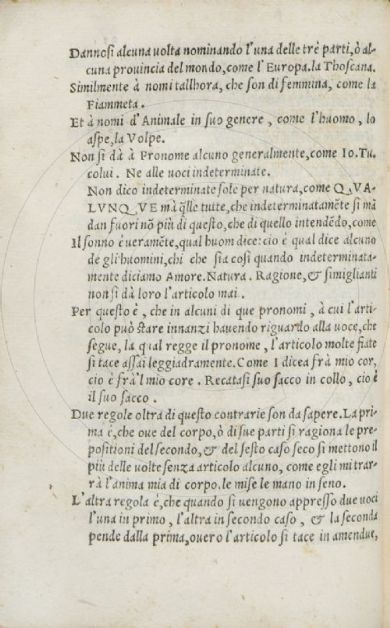 Dannosi alcuna uolta nominando l'una delle trè parti, ò al-
cuna prouincia del mondo, come l'Europa. la Thoscana.
Similmente à nomi tallhora, che son di femmina, come la
Fiammeta.
Et à nomi d'Animale in suo genere, come l'huomo, lo
aspe, la Volpe.
Non si dà à Pronome alcuno generalmente, come Io. Tu.
colui. Ne alle uoci indeterminate.
Non dico indeterminate solo per natura, come QVA-
LVNQVE mà q̃lle tutte, che indeterminatamẽte si mã
dan fuori nõ più di questo, che di quello intendẽdo, come
Il sonno è ueramẽte, qual huom dice: cio è qual dice alcuno
de gli huomini, chi che sia così quando indeterminata-
mente diciamo Amore. Natura. Ragione, & simiglianti
non si dà loro l'articolo mai.
Per questo è, che in alcuni di que pronomi, à cui l'arti-
colo può stare innanzi hauendo riguardo alla uoce, che
segue, la qual regge il pronome, l'articolo molte fiate
si tace assai leggiadramente. Come I dicea frà mio cor,
cio è frà'l mio core. Recatasi suo sacco in collo, cio è
il suo sacco.
Due regole oltra di questo contrarie son da sapere. La pri-
ma è, che oue del corpo, ò di sue parti si ragiona le pre-
positioni del secondo, & del sesto caso seco si mettono il
più delle uolte senza articolo alcuno, come egli mi trar-
rà l'anima mia di corpo. le mise le mano in seno.
L'altra regola è, che quando si uengono appresso due uoci
l'una in primo, l'altra in secondo caso, & la seconda
pende dalla prima, ouero l'articolo si tace in amendue,